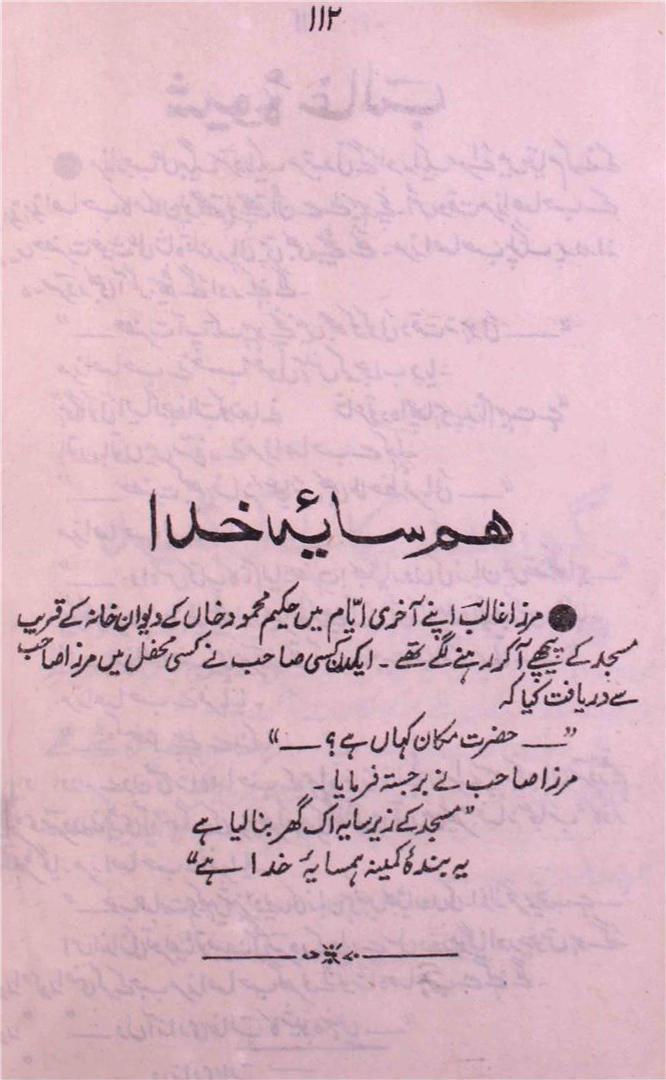 ۱۱۲
هم سایۂ خدا
● مرزا غالبؔ اپنے آخری ایّام میں حکیم محمود خاں کے دیوان خانہ کے قریب
مسجد کے پیچھے آکر رہنے لگے تھے ۔ ایکدن کسی صاحب نے کسی محفل میں مرزا صاحب
سے دریافت کیا کہ
”— حضرت مکان کہاں ہے؟ —“
مرزا صاحب نے برجستہ فرمایا ۔
”مسجد کے زیر سایہ اک گھر بنا لیا ہے
یہ بندۂ کمینہ ہمسایۂ خدا ہے“